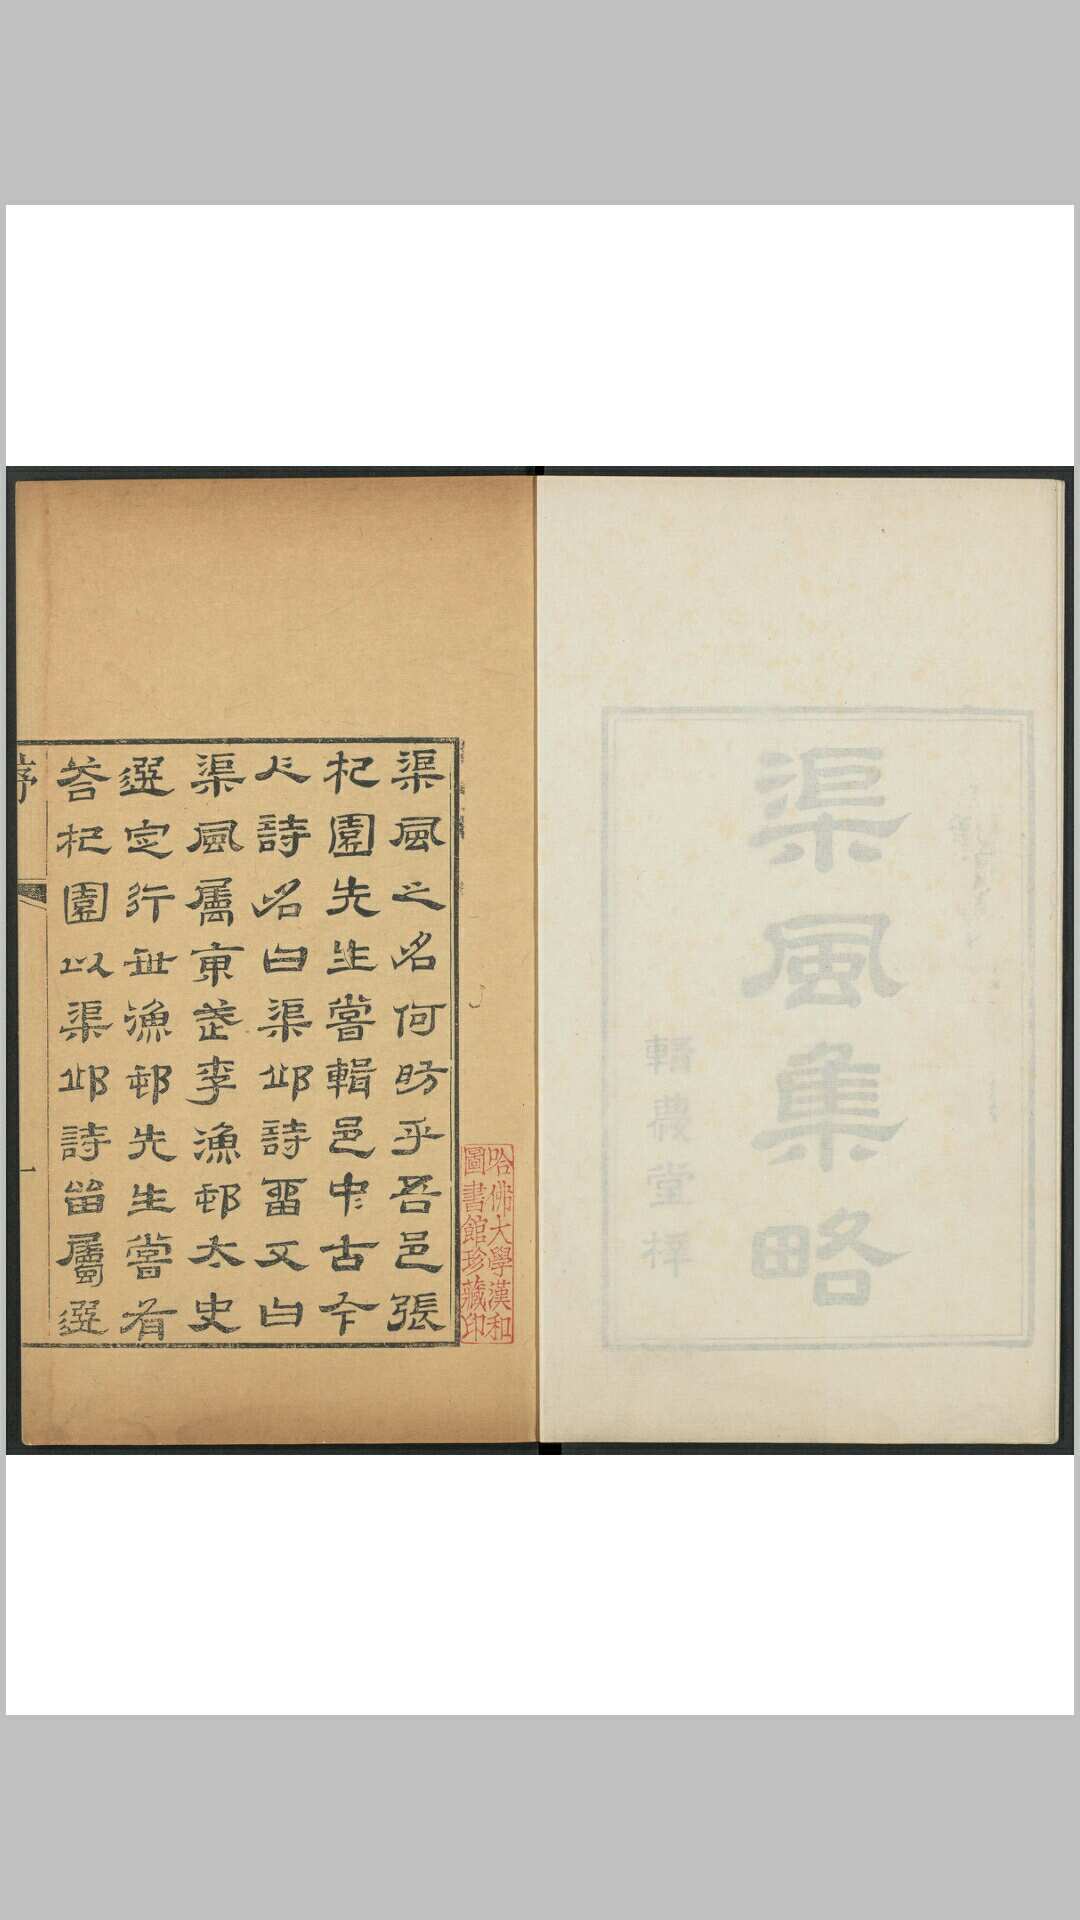 渠風集略
輯慶堂梓
哈佛大學漢和
圖書館珍藏印
渠風之名何昉乎吾邑張
杞園先生嘗輯邑中古今
人詩名曰渠邱詩畱又曰
渠風屬東武李漁邨太史
選定行世漁邨先生嘗有
荅杞園以渠邱詩畱屬選
序
一